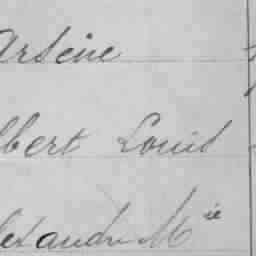 Arsène
lbert Louis
lexandre M^ie